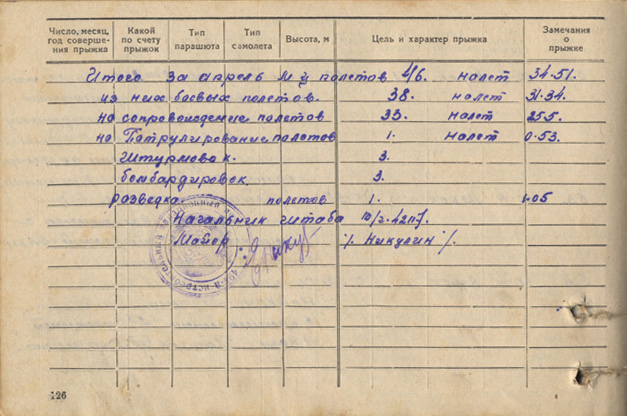 Число, месяц, год совершения прыжка | Какой по счету прыжок | Тип парашюта | Тип самолета | Высота, м | Цель и характер прыжка | Замечания о прыжке
Итого за апрель М-ц полетов 46. налет 34-51.
из них боевых полетов. 38. налет 31.34.
на сопровождение полетов 33. налет 
на Патрулирование полетов 1. налет 0.53.
Штурмовок. 3.
бомбардировок. 3.
разведка. полетов 1. 1.05
Начальник штаба
Майор: /Никулин/.
126